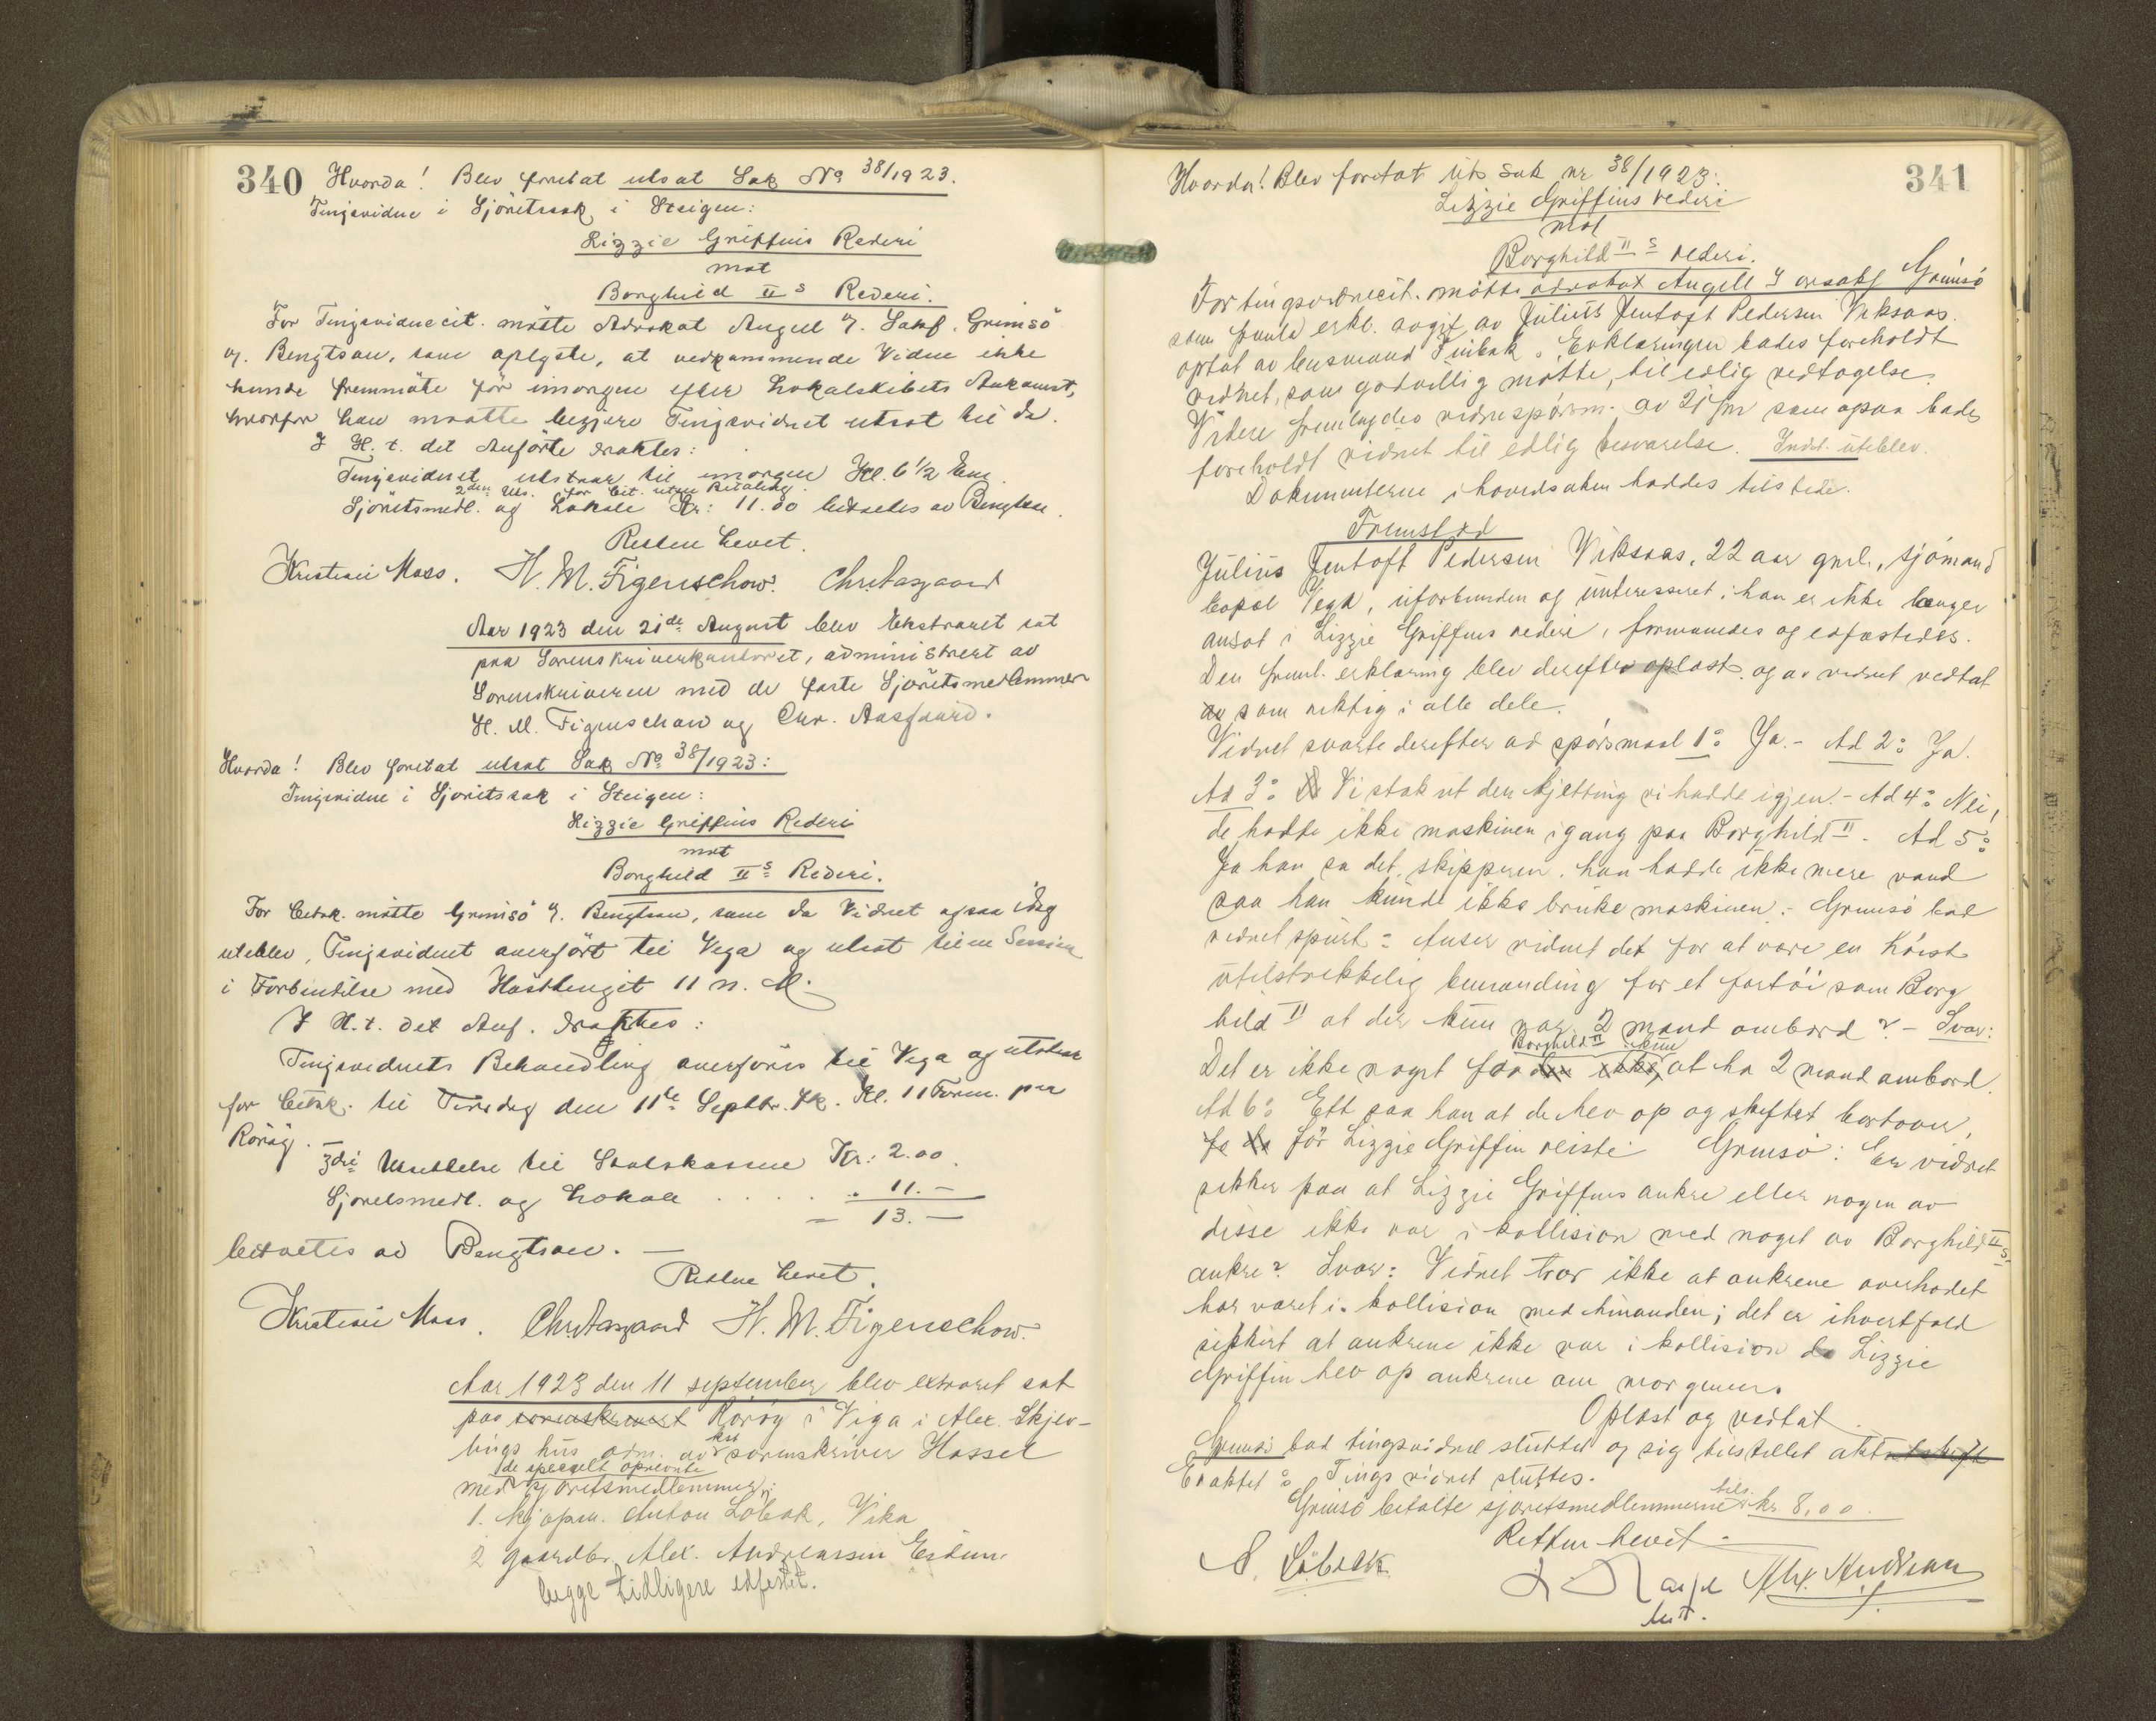 340 Hvorda! Blev foretat utsat Sak No 38/1923.
Tingsvidne i Sjöretssak i Steigen:
Lizzie Griffins Rederi
mot
Borghild IIs Rederi.
For Tingsvidnecit. mötte Advokat Angell v. Sakf. Grimsö
v. Bengtson, som oplyste, at vedkommende Vidne ikke
kunde fremmöte för imorgen efter Lokalskibets Ankomst,
hvorfor han maatte begjære Tingsvidnet utsat til da.
I H. t. det Anförte draktes:
Tingsvidnet utstaar til imorgen Kl. 6 1/2 Em.
2den Uts. for Cit. uten Betaling.
Sjöretsmedl. og Lokale Kr: 11.00 betaltes av Bengtson.
Retten hevet.
Kristian Moss. H. M. Figenschow. Chr. Aasgaard
Aar 1923 den 21de August blev Ekstraret sat
paa Sorenskriverkontoret, administrert av
Sorenskriveren med de faste Sjöretsmedlemmer
H. M. Figenschow og Chr. Aasgaard.
Hvorda! Blev foretat utsat Sak No 38/1923:
Tingsvidne i Sjöretssak i Steigen:
Lizzie Griffins Rederi
mot
Borghild IIs Rederi.
For Citsk. mötte Grimsö v. Bengtson, som da Vidnet ogsaa idag
uteblev, Tingsvidnet overfört til Vega og utsat til en Session
i Forbindelse med Hösttinget 11 n. M.
I H. t. det Anf. draktes:
Tingsvidnets Behandling overföres til Vega og utstaar
for Citsk. til Tirsdag den 11te Septbr. Kl. 11 Form. paa
Röröy.
3dje Utsættelse til Statskassen Kr: 2.00
Sjöretsmedl. og Lokale . . . . . 11.-
- 13.-
betaltes av Bengtson. -
Retten hevet.
Kristian Moss. Chr. Aasgaard H. M. Figenschow.
Aar 1923 den 11 september blev extraret sat
paa sorenskriverk Röröy i Vega i Alex. Skjev-
lings hus adm. av kst sorenskriver Hassel
de specielt opnevnte
med sjöretsmedlemmer:
1. kjøpm. Anton Löbak, Vika
2 gaardbr. Alex. Andreassen Eidem.
begge tidligere edfestet.
341
Hvorda! Blev foretat uts sak nr 38/1923:
Lizzie Griffins rederi
mot
Borghild IIs rederi.
For tingsvidnecit. mötte advokat Angell v orsakf Grimsö
som fremla erkl. avgit av Julius Jentoft Pedersen Viksaas.
optat av lensmand Finbak. Erklæringen bades foreholdt
vidnet, som godvillig mötte, til edlig vedtagelse.
Videre fremlagdes vidnespörsm. av 21 fm som ogsaa bades
foreholdt vidnet til edlig besvarelse. Indst. uteblev.
Dokumenterne i hovedsaken haddes tilstede.
Fremstod
Julius Jentoft Pedersen Viksaas, 22 aar gml., sjömand
bopæl Vega, uforbunden og uinteressert; han er ikke længer
ansat i Lizzie Griffins rederi, formanedes og edfæstedes.
Den freml. erklæring blev derefter oplæst og av vidnet vedtat
av som riktig i alle dele.
Vidnet svarte derefter ad spörsmaal 1: Ja. - Ad 2: Ja.
Ad 3: Vi stak ut den kjetting vi hadde igjen. - Ad 4: Nei,
de hadde ikke maskinen igang paa Borghild II. Ad 5:
Ja han sa det, skipperen. han hadde ikke mere vand
saa han kunde ikke bruke maskinen. - Grimsö bad
vidnet spurt: Anser vidnet det for at være en höist
utilstrekkelig bemanding for et fartöi som Borg
hild II at der kun var 2 mand ombord? - Svar:
Borghild II kun
Det er ikke noget for den ikke at ha 2 mand ombord.
Ad 6: Ett saa han at de hev op og skiftet bortover,
fo da för Lizzie Griffin reiste Grimsö: Er vidnet
sikker paa at Lizzie Griffins ankre eller nogen av
disse ikke var i kollision med noget av Borghild IIs
ankre? Svar: Vidnet tror ikke at ankrene overhodet
har været i kollision med hinanden; det er ihvertfald
sikkert at ankrene ikke var i kollision da Lizzie
Griffin hev op ankrene om morgenen.
Oplæst og vedtat
Grimsö bad tingsvidnet sluttet og sig tilstillet aktutskrift
Eraktet: Tingsvidnet sluttes.
Grimsö betalte sjöretsmedlemmerne tils. kr 8,00.
Retten hevet -
A. Löbak Alex. Andreassen
kst.